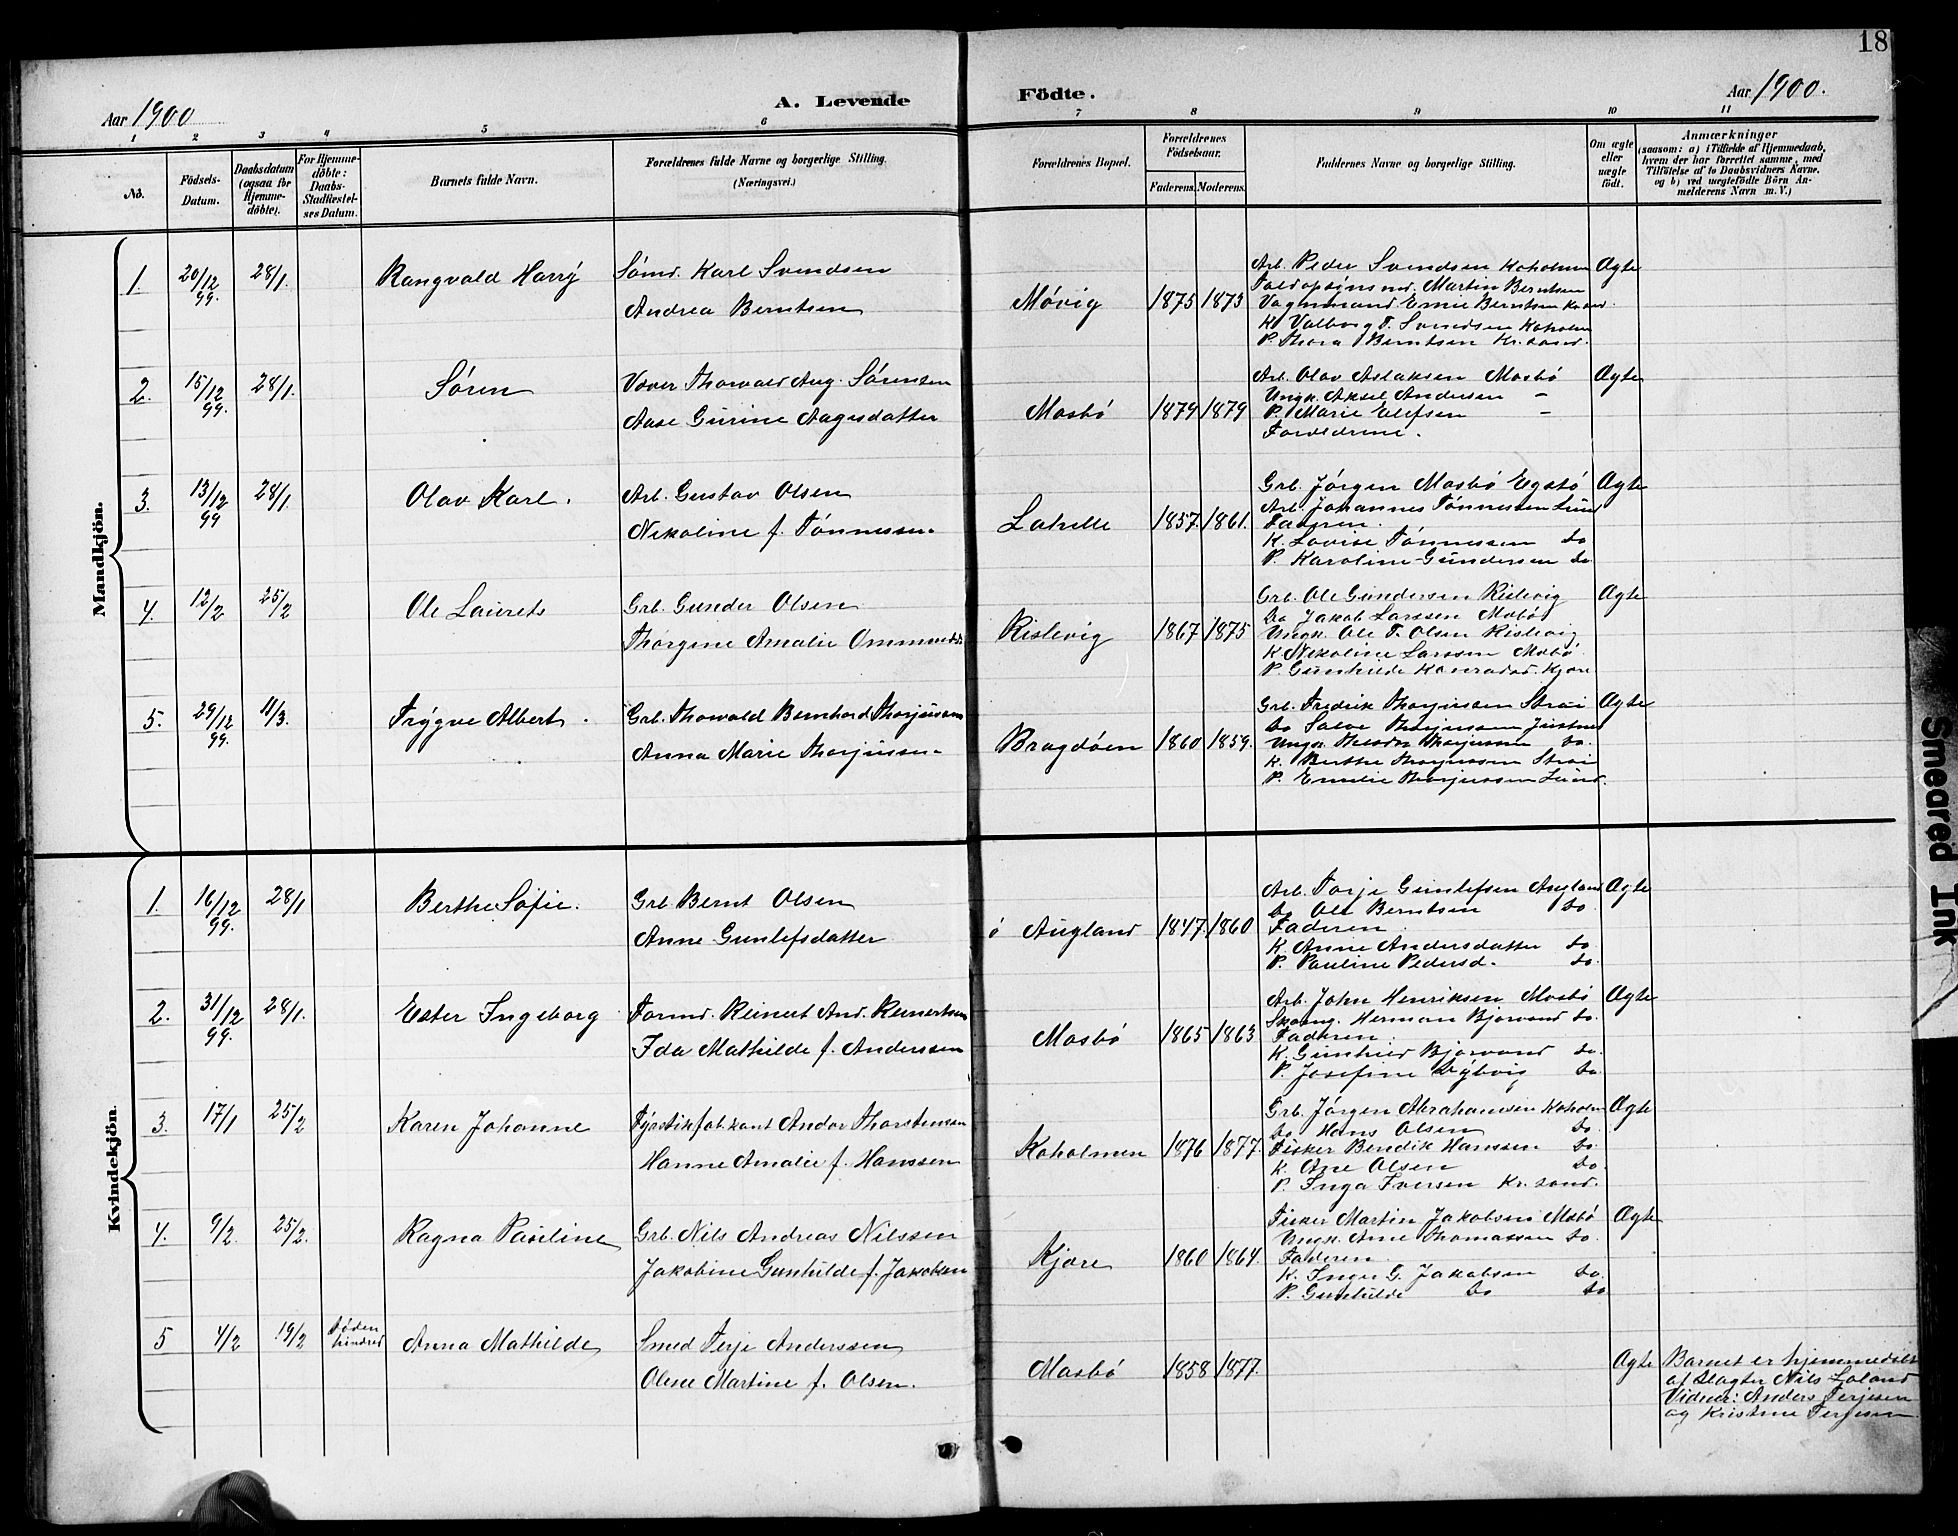 18
Aar 1900
A. Levende Födte.
Aar 1900.
1 2 3 4 5 6 7 8 9 10 11
No.
Födsels-
Datum.
Daabsdatum
(ogsaa for
Hjemme-
döbte).
For Hjemme-
döbte:
Daabs-
Stadfæstel-
ses Datum.
Barnets fulde Navn.
Forældrenes fulde Navne og borgerlige Stilling.
(Næringsvei.)
Forældrenes Bopæl.
Forældrenes
Födselsaar.
Faderens. Moderens.
Faddernes Navne og borgerlige Stilling.
Om ægte
eller
uægte
födt.
Anmærkninger
(saasom: a) i Tilfælde af Hjemmedaab,
hvem der har forrettet samme, med
Tilföielse af to Daabsvidners Navne.
og b) ved uægtefödte Börn An-
melderens Navn m. V.)
Mandkjön.
1. 20/12 99. 28/1. Rangvald Harry
Sømd. Karl Svendsen
Andrea Berntsen
Møvig 1875 1873
Arb. Peder Svendsen Koholmen
Martin Berntsen
Vognmand Emil Berntsen Kr.sand.
K. Valborg T. Svendsen Koholm
P. Thora Berntsen Kr.sand.
Ægte
2. 15/12 99. 28/1. Søren
Væver Thorvald Aug. Sørensen
Aase Gurine Aagesdatter
Mosbø 1879 1879
Arb. Olav Aslaksen Mosbø
Ungk. Aksel Andersen -
P. Marie Olefsen -
Forældrene.
Ægte
3. 13/12 99 28/1. Olav Karl.
Arb. Gustav Olsen
Nikoline f. Tønnessen
Lahelle 1857 1861.
Grb. Jørgen Mosbø Egstø
Arb. Johannes Tønnessen Lund
Faderen.
K. Lovise Tønnessen do
P. Karoline Gundersen do
Ægte
4. 12/2 25/2 Ole Laurets
Grb. Gunder Olsen
Thorgine Amalie Ommundsd.
Rislevig 1867 1875
Grb. Ole Gundersen Rislevig
do Jakob Larssen Mobø
Ungk. Ole T. Olsen Rislevig
K. Nikoline Larssen Mosbø
P. Gunhilde Konradsd. Kjøre
Ægte
5. 29/12 99. 11/3. Trygve Albert.
Grb. Thorvald Bernhard Thorjussen
Anna Marie Thorjussen
Bragdøen 1860 1859.
Grb. Fredrik Thorjussen Strai
do Salve Thorjussen Justnes
Ungk. Theodor Thorjussen do.
K. Berthe Thorjussen Strai
P. Emilie Thorjussen Lund.
Ægte
Kvindekjön.
1. 16/12 99. 28/1 Berthe Sofie.
Grb. Bernt Olsen
Anne Gunlefsdatter
ø Augland 1847. 1860
Arb. Torje Gunlefsen Augland
do Ole Berntsen do.
Faderen.
K. Anne Andersdatter do.
P. Pauline Pedersd. do.
Ægte
2. 31/12 99. 28/1. Ester Ingeborg
Formd. Reinert And. Reinertsen
Ida Mathilde f. Anderssen
Mosbø 1865 1863
Arb. John Henriksen Mosbø
Skomg. Herman Bjorvand do.
Faderen.
K. Gunhild Bjorvand do.
P. Josefine Dybvig do.
Ægte
3. 17/1 25/2 Karen Johanne
Fyrstikfabkant Andor Thorstensen
Hanne Amalie f. Hanssen
Koholmen 1876 1877.
Grb. Jørgen Abrahamsen Koholm
do Hans Olsen do.
Fisker Bendik Hanssen do.
K. Ane Olsen do.
P. Inga Iversen Kr.sand.
Ægte
4. 9/2. 25/2. Ragna Pauline
Grb. Nils Andreas Nilssen
Jakobine Gunhilde f. Jakobsen
Kjøre 1860 1864.
Fisker Martin Jakobsen Mosbø
Ungk. Arne Thomassen do.
Faderen.
K. Inger G. Jakobsen do.
P. Gunhilde do do
Ægte
5 4/2 19/2 Døden
hindred
Anna Mathilde
Smed Terje Anderssen
Olene Martine f. Olsen.
Mosbø 1858 1877.
Ægte
Barnet er hjemmedøbt
af Slagter Nils Loland
Vidner: Anders Terjesen
og Kristine Terjesen
Smeared Ink